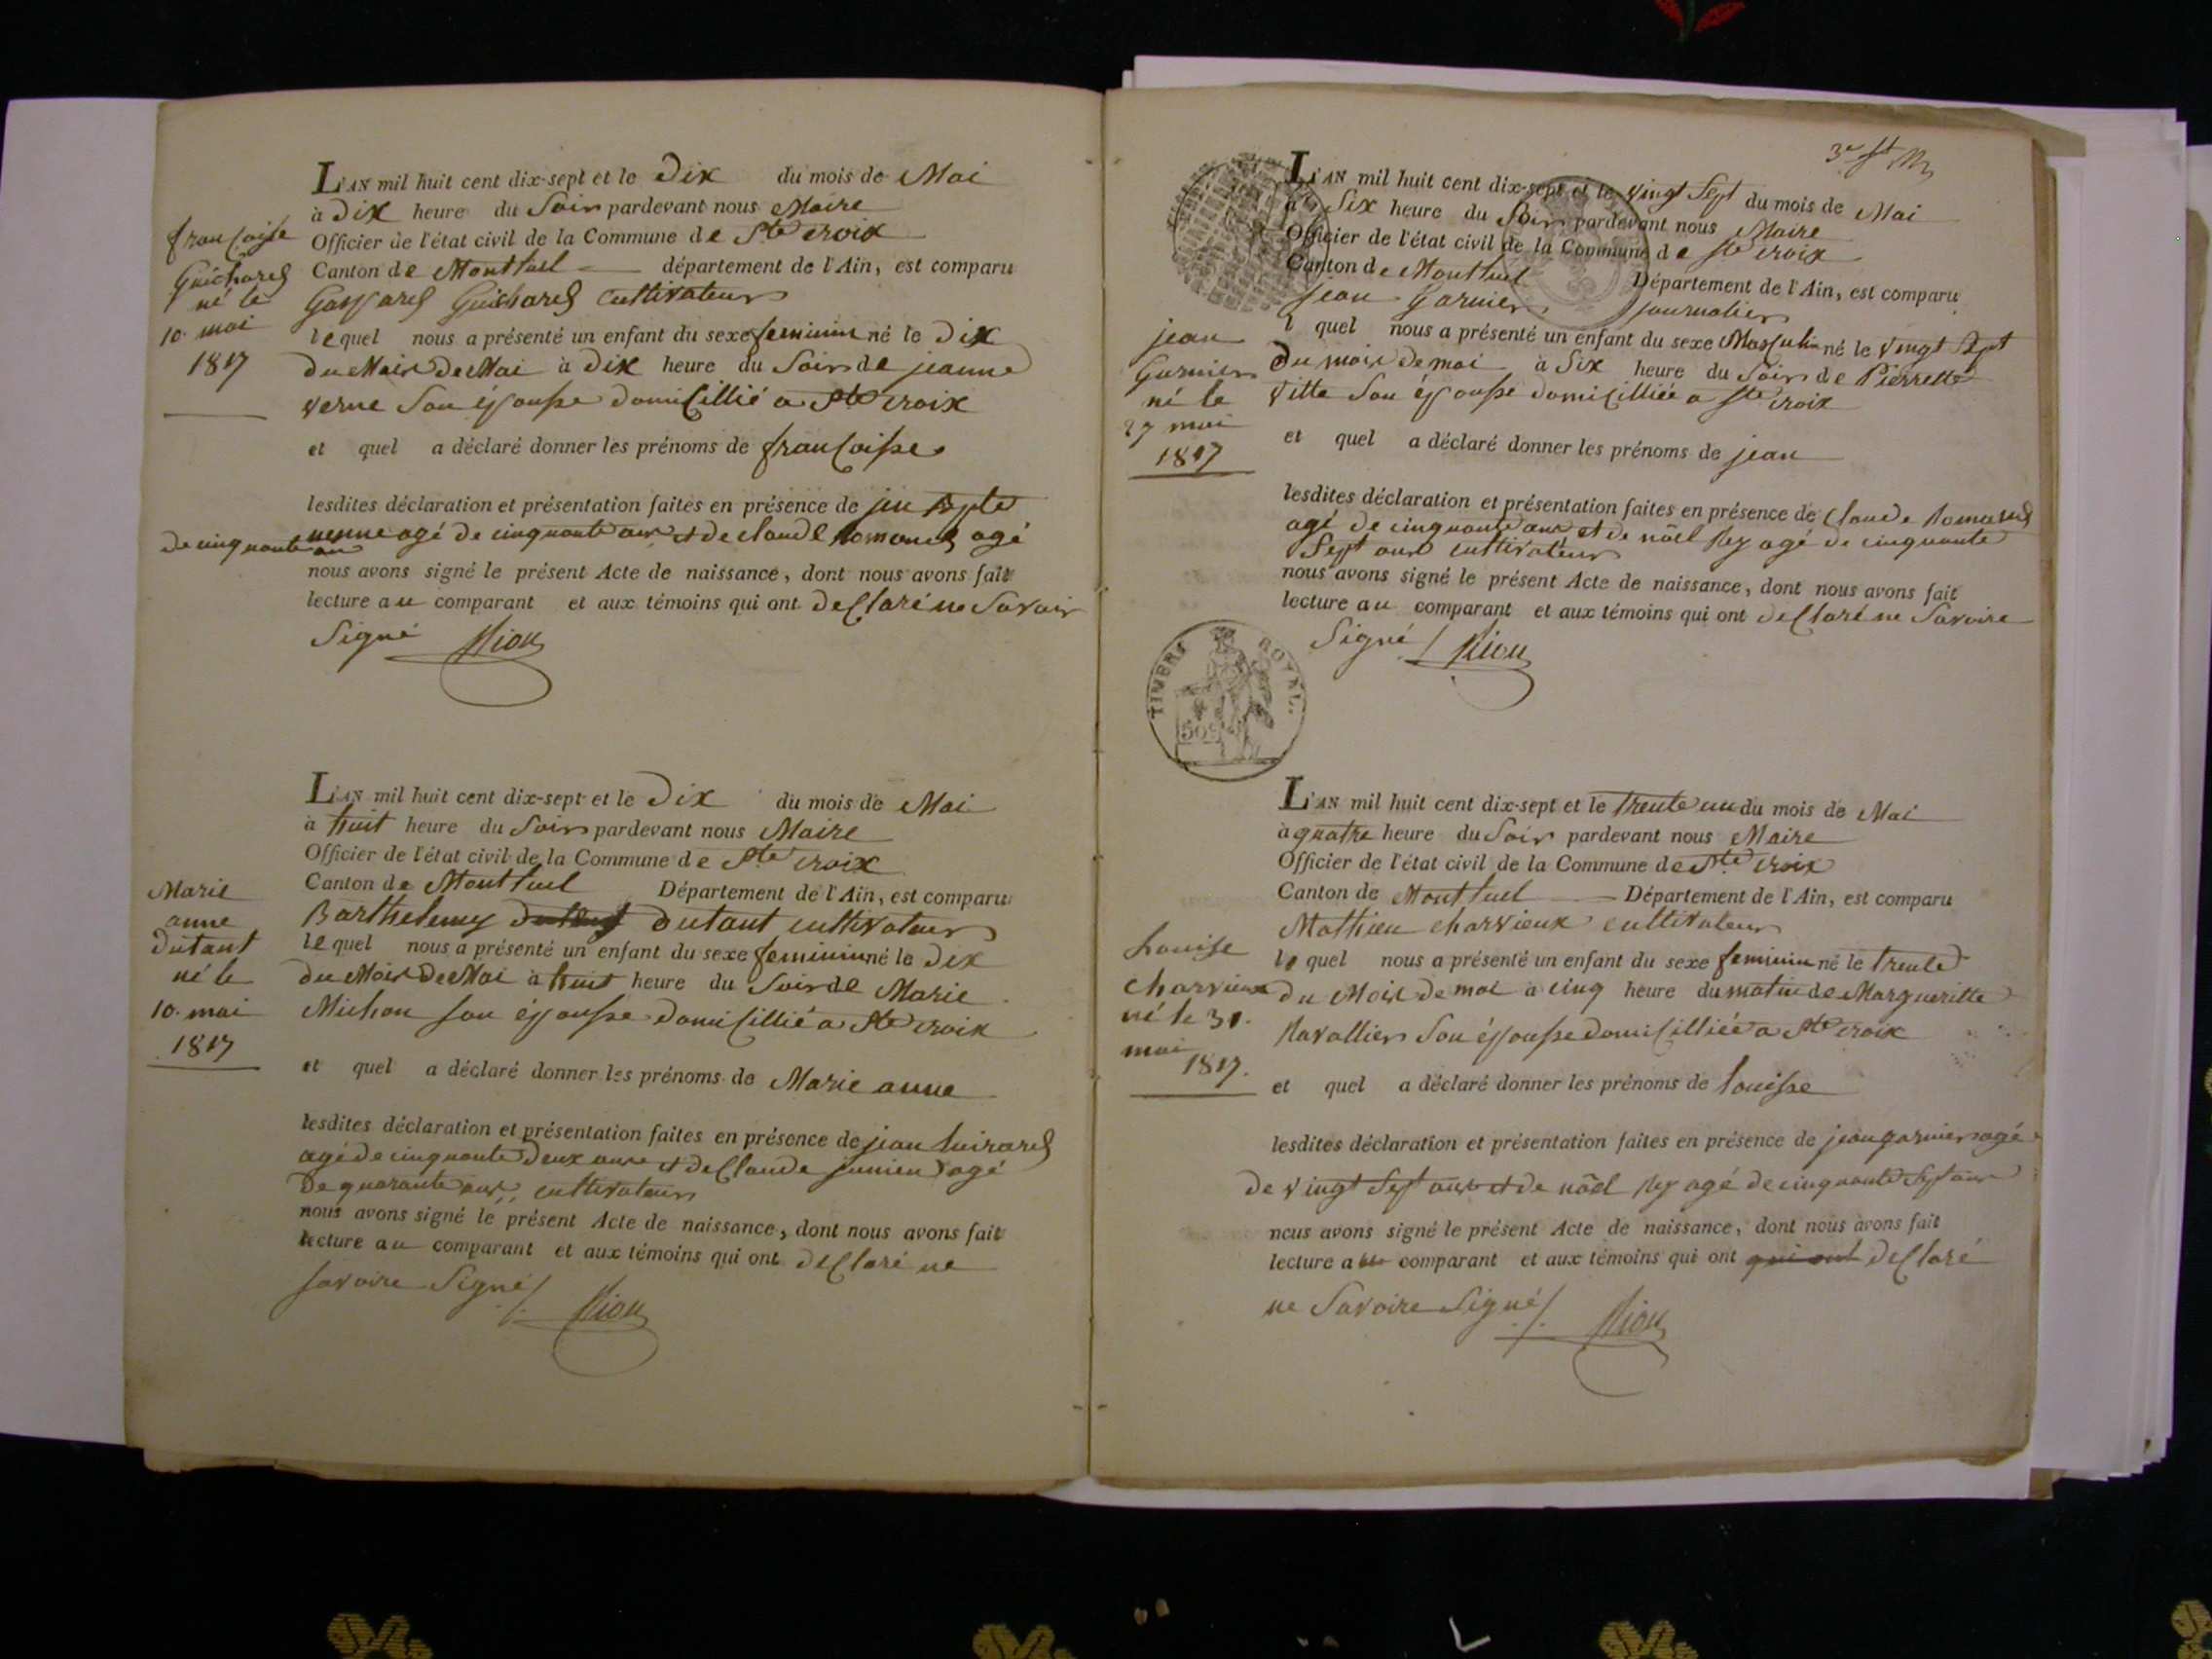 L'AN mil huit cent dix-sept et le Dix du mois de Mai
à Dix heure du Soir pardevant nous Maire
Officier de l'état civil de la Commune de Ste croix
Canton de Montluel département de l'Ain, est comparu
Gaspard Guichard Cultivateur
lequel nous a présenté un enfant du sexe feminin né le Dix
du Mois De Mai à Dix heure du Soir de jeanne
verne Son épouse domicillié a Ste croix
et quel a déclaré donner les prénoms de francoise
francoise
Guichard
né le
10 mai
1817
lesdites déclaration et présentation faites en présence de
agé de cinquante ans et de claude Romand agé
de cinquante an
nous avons signé le présent Acte de naissance, dont nous avons fait
lecture au comparant et aux témoins qui ont declaré ne Savoir
Signé Rion
L'AN mil huit cent dix-sept et le Dix du mois de Mai
à huit heure du Soir pardevant nous Maire
Officier de l'état civil de la Commune de Ste croix
Canton de Montluel Département de l'Ain, est comparu
Barthelemy dutant cultivateur
lequel nous a présenté un enfant du sexe feminin né le Dix
du Mois De Mai à huit heure du Soir de Marie
Michon son épouse domicillié a Ste croix
et quel a déclaré donner les prénoms de Marie anne
Marie
anne
Dutant
né le
10 mai
1817
lesdites déclaration et présentation faites en présence de jean
agé de cinquante Deux ans et de Claude agé
De quarante ans cultivateur
nous avons signé le présent Acte de naissance, dont nous avons fait
lecture au comparant et aux témoins qui ont declaré ne
savoire Signé Rion
L'AN mil huit cent dix-sept et le vingt Sept du mois de Mai
à Six heure du Soir pardevant nous Maire
Officier de l'état civil de la Commune de Ste croix
Canton de Montluel Département de l'Ain, est comparu
jean Garnier journalier
l quel nous a présenté un enfant du sexe Masculin né le vingt Sept
Du mois de mai à Six heure du Soir de Pierrette
Vitte Son épouse domicilliée a Ste croix
et quel a déclaré donner les prénoms de jean
jean
Garnier
né le
27 mai
1817
lesdites déclaration et présentation faites en présence de Claude Romand
agé de cinquante ans et de nöel Rey agé de cinquante
Sept ans cultivateur
nous avons signé le présent Acte de naissance, dont nous avons fait
lecture au comparant et aux témoins qui ont declaré ne Savoire
Signé Rion
TIMBRE ROYAL
L'AN mil huit cent dix-sept et le trente un du mois de Mai
à quatre heure du Soir pardevant nous Maire
Officier de l'état civil de la Commune de Ste croix
Canton de Montluel Département de l'Ain, est comparu
Mathieu charvieux cultivateur
le quel nous a présenté un enfant du sexe feminin né le trente
du Mois de mai à cinq heure du matin de Margueritte
Ravallier Son épouse domicilliée a Ste croix
et quel a déclaré donner les prénoms de louise
Louise
charvieux
né le 31
mai
1817.
lesdites déclaration et présentation faites en présence de jean garnier agé
de vingt Sept ans et de nöel Rey agé de cinquante Sept ans
nous avons signé le présent Acte de naissance, dont nous avons fait
lecture au comparant et aux témoins qui ont qui ont declaré
ne Savoire Signé Rion